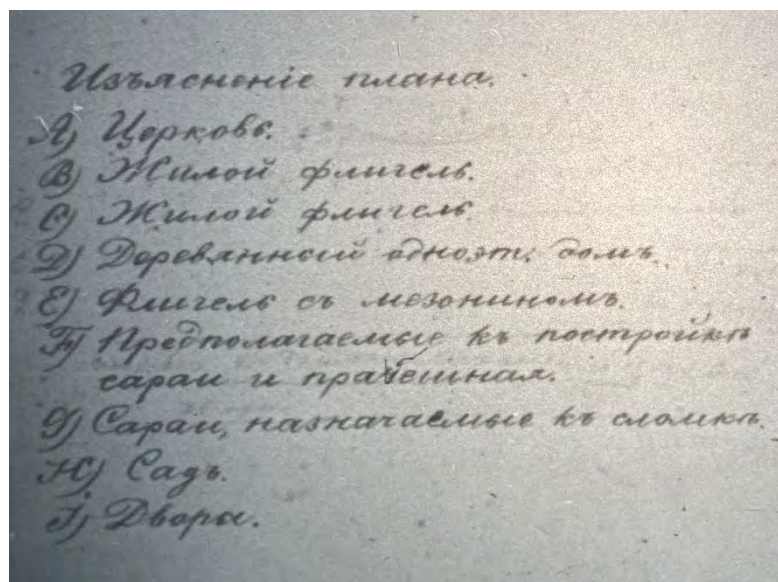 Изъясненіе плана.
A) Церковь.
B) Жилой флигель.
C) Жилой флигель.
D) Деревянный одноэт. домъ.
E) Флигель съ мезониномъ.
F) Предполагаемые къ постройкѣ
сараи и прачешная.
G) Сараи, назначаемые къ сломкѣ.
H) Садъ.
J) Дворы.